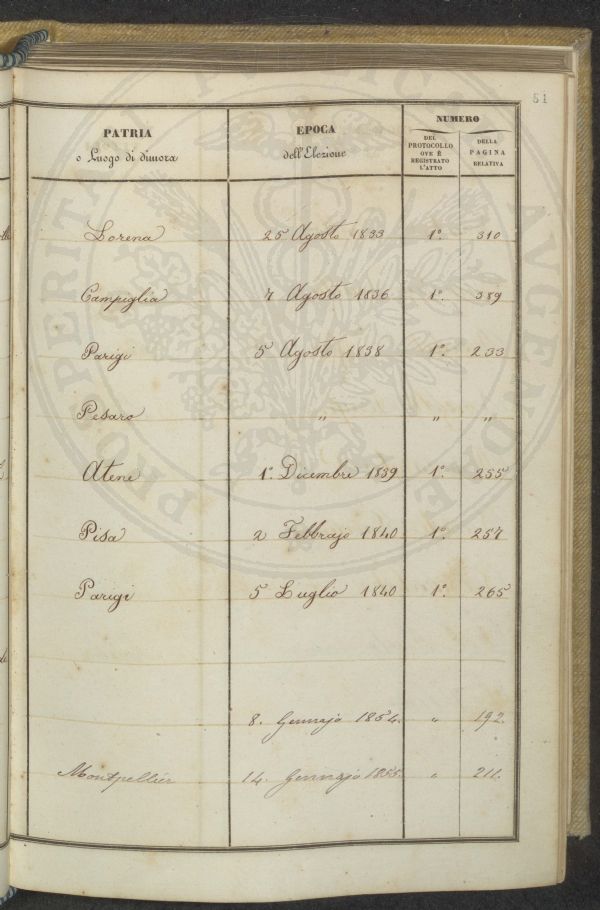 51
PATRIA
o Luogo di dimora
EPOCA
dell'Elezione
NUMERO
DEL
PROTOCOLLO
OVE È
REGISTRATO
L'ATTO
DELLA
PAGINA
RELATIVA
Lorena 25 Agosto 1833 1°. 310
Campiglia 7 Agosto 1836 1°. 389
Parigi 5 Agosto 1838 1°. 233
Pesaro " " "
Atene 1°. Dicembre 1839 1°. 255
Pisa 2 Febbrajo 1840 1°. 257
Parigi 5 Luglio 1840 1°. 265
8. Gennajo 1854. " 192.
Montpellier 14. Gennajo 1855. " 211.